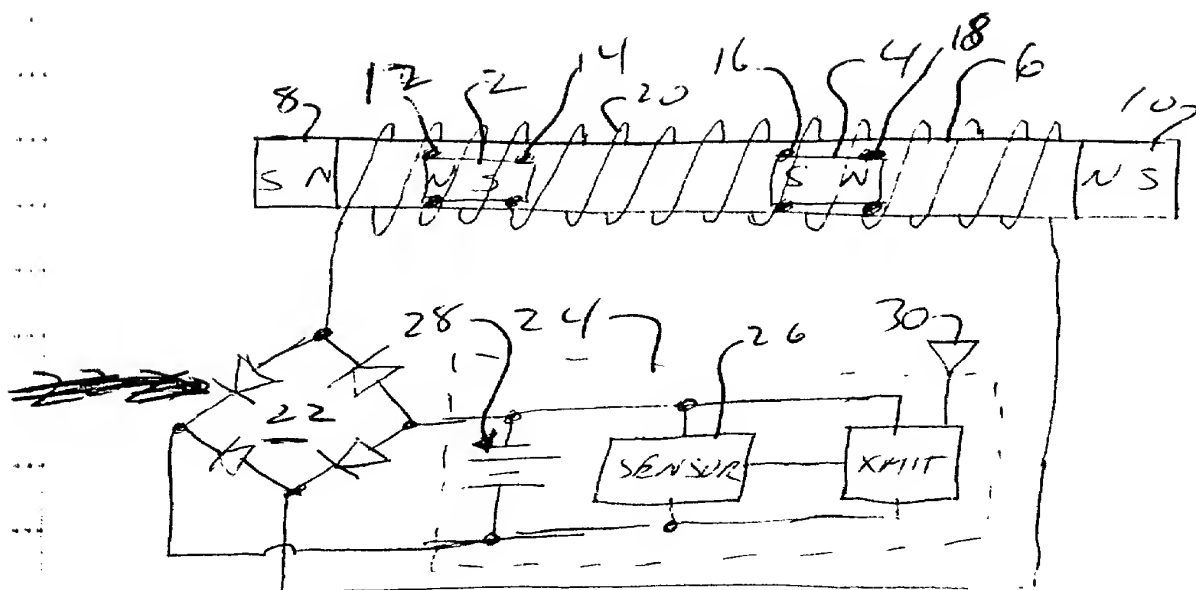 12 2 14 16 4 18 6
8 20 10
S N N S S N N S
28 24 26 30
22
SENSOR XMIT